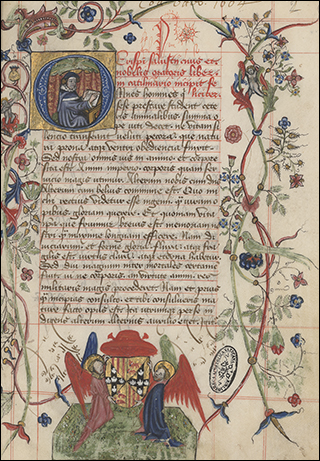 Crispi Salustii ciuis et
nobilis oratoris liber
in catilinario incipit fe
mnes homines q
sese prestare student cete
ris animalibus summa o
pe niti decet: ne vitam si
lencio transeant veluti pecora: que natu
ra prona: atq ventri obediencia finxit
Sed nostra omnis vis in animo et corpore
sita est Animi imperio: corporis quam ser
uicio magis utimur. Alterum nobis cum diis
Alterum cum beluis commune est Quo mi
chi rectius videtur esse ingenii q virium o
pibus gloriam querere. Et quoniam vita
ipsa qua fruimur breuis est memoriam nostr
i q maxime longam efficere. Nam di
uiciarum et forme gloria fluxa: atq fra
gilis est virtus clara: atq eterna habetur
Sed diu magnum inter mortales certamen
fuit vi ne corporis: an virtute animi res
militaris magis procederet. Nam et prius
q incipias consulto: et vbi consulueris ma
ture facto opus est Ita utrumq per se in
digens alterum alterius auxilio eget